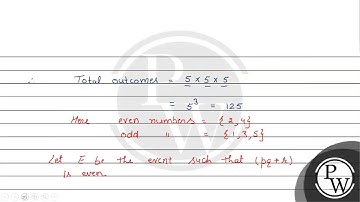 ∴ Total outcomes = 5 × 5 × 5
= 5³ = 125
Here even numbers = {2, 4}
odd " = {1, 3, 5}
Let E be the event such that (pq + r)
is even
P
W